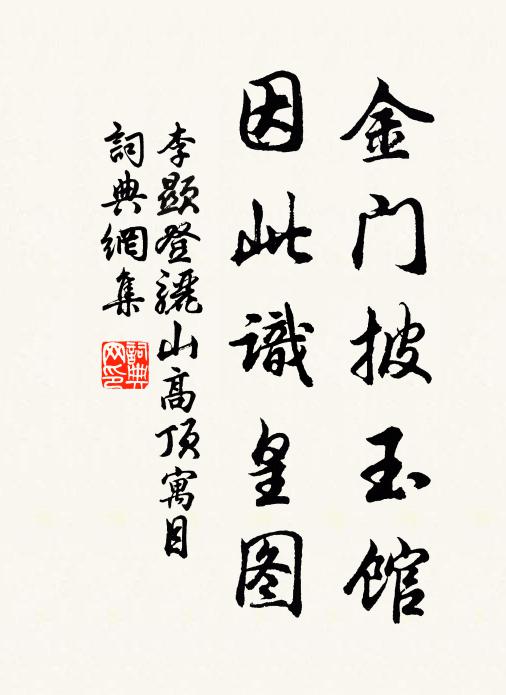 金门披玉馆
因此識皇图
李顯登驪山高顶寓目
詞典網集
詞典网印